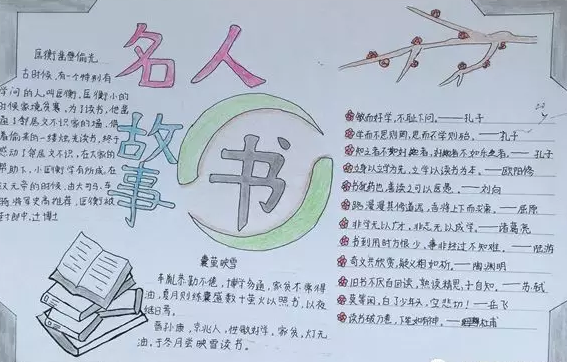 名人
故事
书
匡衡凿壁偷光
古时候，有一个特别有
学问的人，叫匡衡，匡衡小的
时候家境贫寒，为了读书，他凿
文不识家的墙，借
着偷来的一缕烛光读书，终于
感动了邻居文不识，在大家的
帮助下，小匡衡学有所成，在
汉元帝的时候，由大司马、车
将军史高推荐，匡衡被
封郎中，迁博士
囊萤映雪
车胤恭勤不倦，博学多通，家贫不常得
油，夏月则练囊盛数十萤火以照书，以夜
继日焉。
晋孙康，京兆人，性敏好学，家贫，灯无
油，于冬月尝映雪读书。
敏而好学，不耻下问。——孔子
学而不思则罔，思而不学则殆。——孔子
知之者不如好之者，好之者不如乐之者。——孔子
立身以立学为先，立学以读书为本。——欧阳修
书犹药也，善读之可以医愚。——刘向
路漫漫其修道远，吾将上下而求索。——屈原
非学无以广才，非志无以成学。——诸葛亮
书到用时方恨少，事非经过不知难。——陆游
奇文共欣赏，疑义相如析。——陶渊明
旧书不厌百回读，熟读精思子自知。——苏轼
莫等闲，白了少年头，空悲切！——岳飞
读书破万卷，下笔如有神。——杜甫